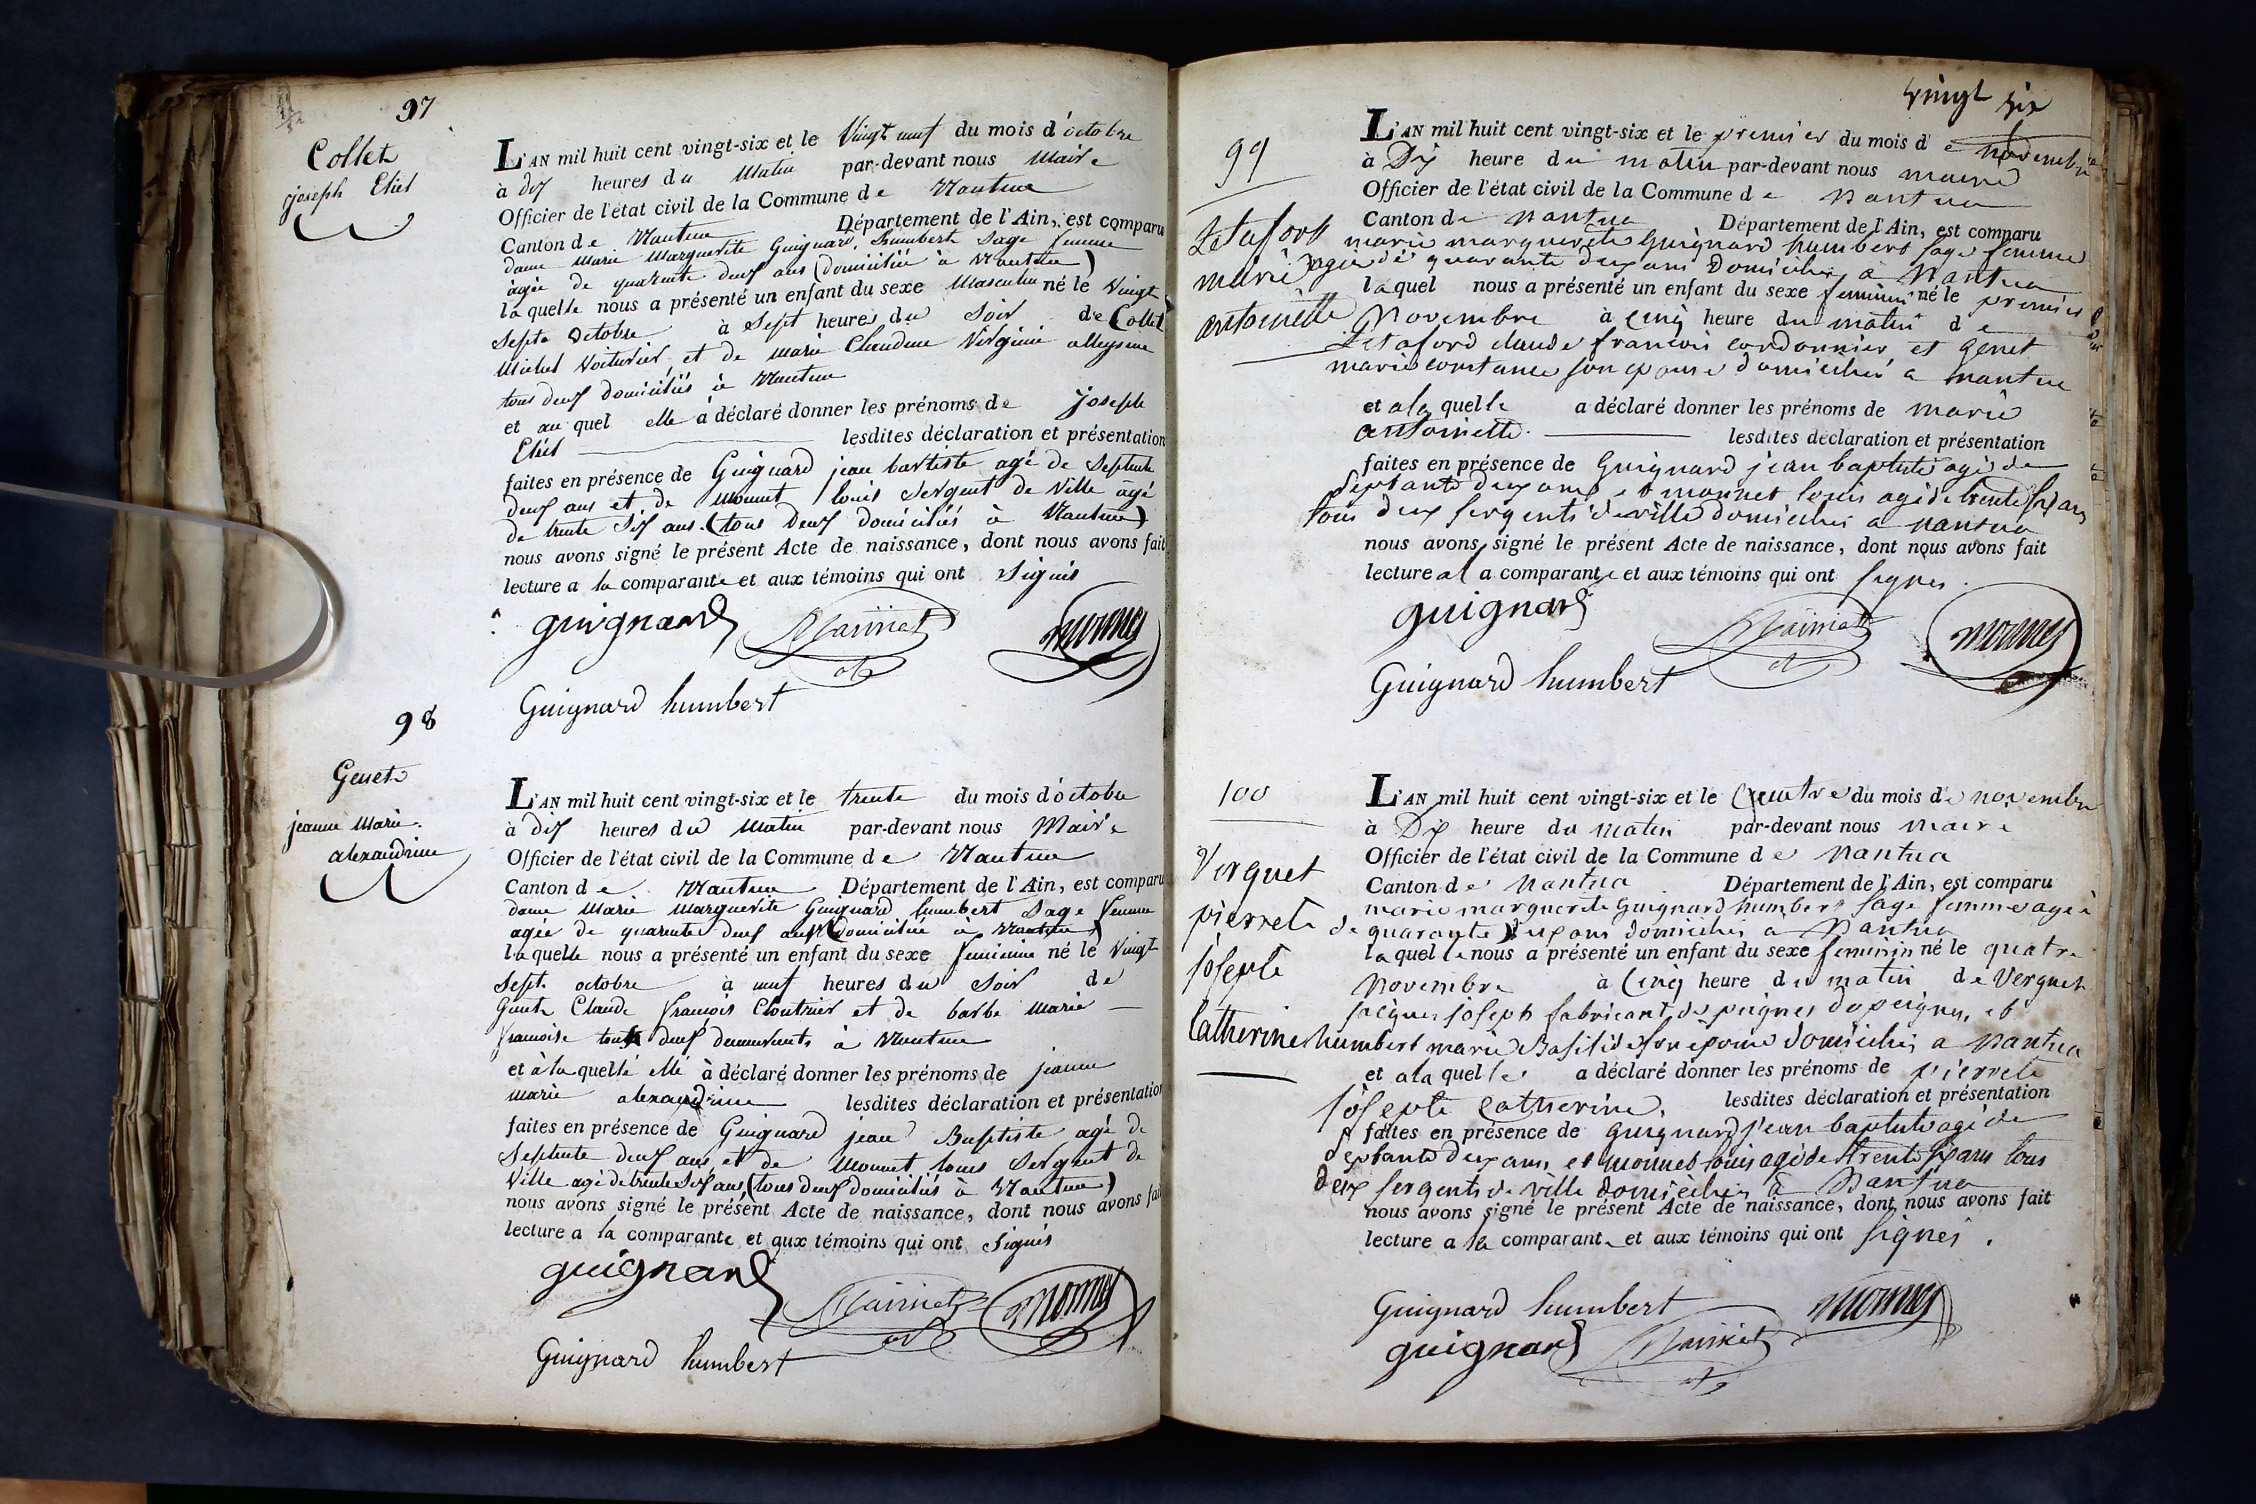 97
Collet
joseph Eliel
L'AN mil huit cent vingt-six et le Vingt neuf du mois d'octobre
à dix heures du Matin par-devant nous Maire
Officier de l'état civil de la Commune de Nantua
Canton de Nantua Département de l'Ain, est comparu
dame Marie Marguerite Guignard humbert Sage femme
agée de quarente deux ans (domiciliée à Nantua)
laquelle nous a présenté un enfant du sexe Masculin né le Vingt
Septe Octobre à Sept heures du Soir de Collet
Michel Voiturier et de marie Claudine Virginie
tous deux domiciliés à Nantua
et au quel elle à déclaré donner les prénoms de joseph
Eliel lesdites déclaration et présentation
faites en présence de Guignard jean bartiste agé de Septente
deux ans et de Monnet louis Sergent de Ville âgé
de trente Six ans (tous deux domiciliés à Nantua)
nous avons signé le présent Acte de naissance, dont nous avons fait
lecture a la comparante et aux témoins qui ont Signés
guignard monnet
Guignard humbert
98
Genet
jeanne Marie
alexandrine
L'AN mil huit cent vingt-six et le trente du mois d'octobre
à dix heures du Matin par-devant nous Maire
Officier de l'état civil de la Commune de Nantua
Canton de Nantua Département de l'Ain, est comparu
dame Marie Marguerite Guignard humbert Sage femme
agée de quarente deux ans (domiciliée à Nantua)
laquelle nous a présenté un enfant du sexe feminine né le Vingt
Sept octobre à neuf heures du Soir de
Genet Claude François Cloutrier et de barbe Marie
françoise tous deux demeurents à Nantua
et à laquelle elle à déclaré donner les prénoms de jeanne
marie alexandrine lesdites déclaration et présentation
faites en présence de Guignard jean Baptiste agé de
Septente deux ans et de Monnet louis Sergent de
Ville agé de trente Six ans (tous deux domiciliés à Nantua)
nous avons signé le présent Acte de naissance, dont nous avons fait
lecture a la comparante et aux témoins qui ont Signés
guignard monnet
Guignard humbert
vingt six
99
Letafort
marie
antoinette
L'AN mil huit cent vingt-six et le premier du mois de novembre
à Dix heure du matin par-devant nous maire
Officier de l'état civil de la Commune de Nantua
Canton de Nantua Département de l'Ain, est comparu
marie marguerite Guignard humbert sage femme
agée de quarante deux ans Domiciliée à Nantua
laquel nous a présenté un enfant du sexe feminin né le premier
Novembre à cinq heure du matin de
Letaford claude francois cordonnier et Genet
marie constance son epouse domiciliés a nantua
et a la quelle a déclaré donner les prénoms de marie
antoinette. lesdites déclaration et présentation
faites en présence de Guignard jean baptiste agé de
septante deux ans et monnet louis agé de trente six ans
tous deux sergents de ville domiciliés a nantua
nous avons signé le présent Acte de naissance, dont nous avons fait
lecture a la comparante et aux témoins qui ont signés.
guignard monnet
Guignard humbert
100
Verguet
pierrete
josepte
Catherine
L'AN mil huit cent vingt-six et le Quatre du mois de novembre
à Dix heure du matin par-devant nous maire
Officier de l'état civil de la Commune de Nantua
Canton de Nantua Département de l'Ain, est comparu
marie marguerite Guignard humbert sage femme agée
de quarante deux ans domiciliée a Nantua
laquelle nous a présenté un enfant du sexe feminin né le quatre
Novembre à Cinq heure du matin de Verguet
jacques joseph fabricant de peignes et
humbert marie Basilide son épouse domiciliés a Nantua
et a la quelle a déclaré donner les prénoms de pierrete
josepte catherine. lesdites déclaration et présentation
faites en présence de Guignard jean baptiste agé de
septante deux ans et monnet louis agé de trente six ans tous
deux sergents de ville domiciliés à Nantua
nous avons signé le présent Acte de naissance, dont nous avons fait
lecture a la comparante et aux témoins qui ont signés.
Guignard humbert monnet
guignard